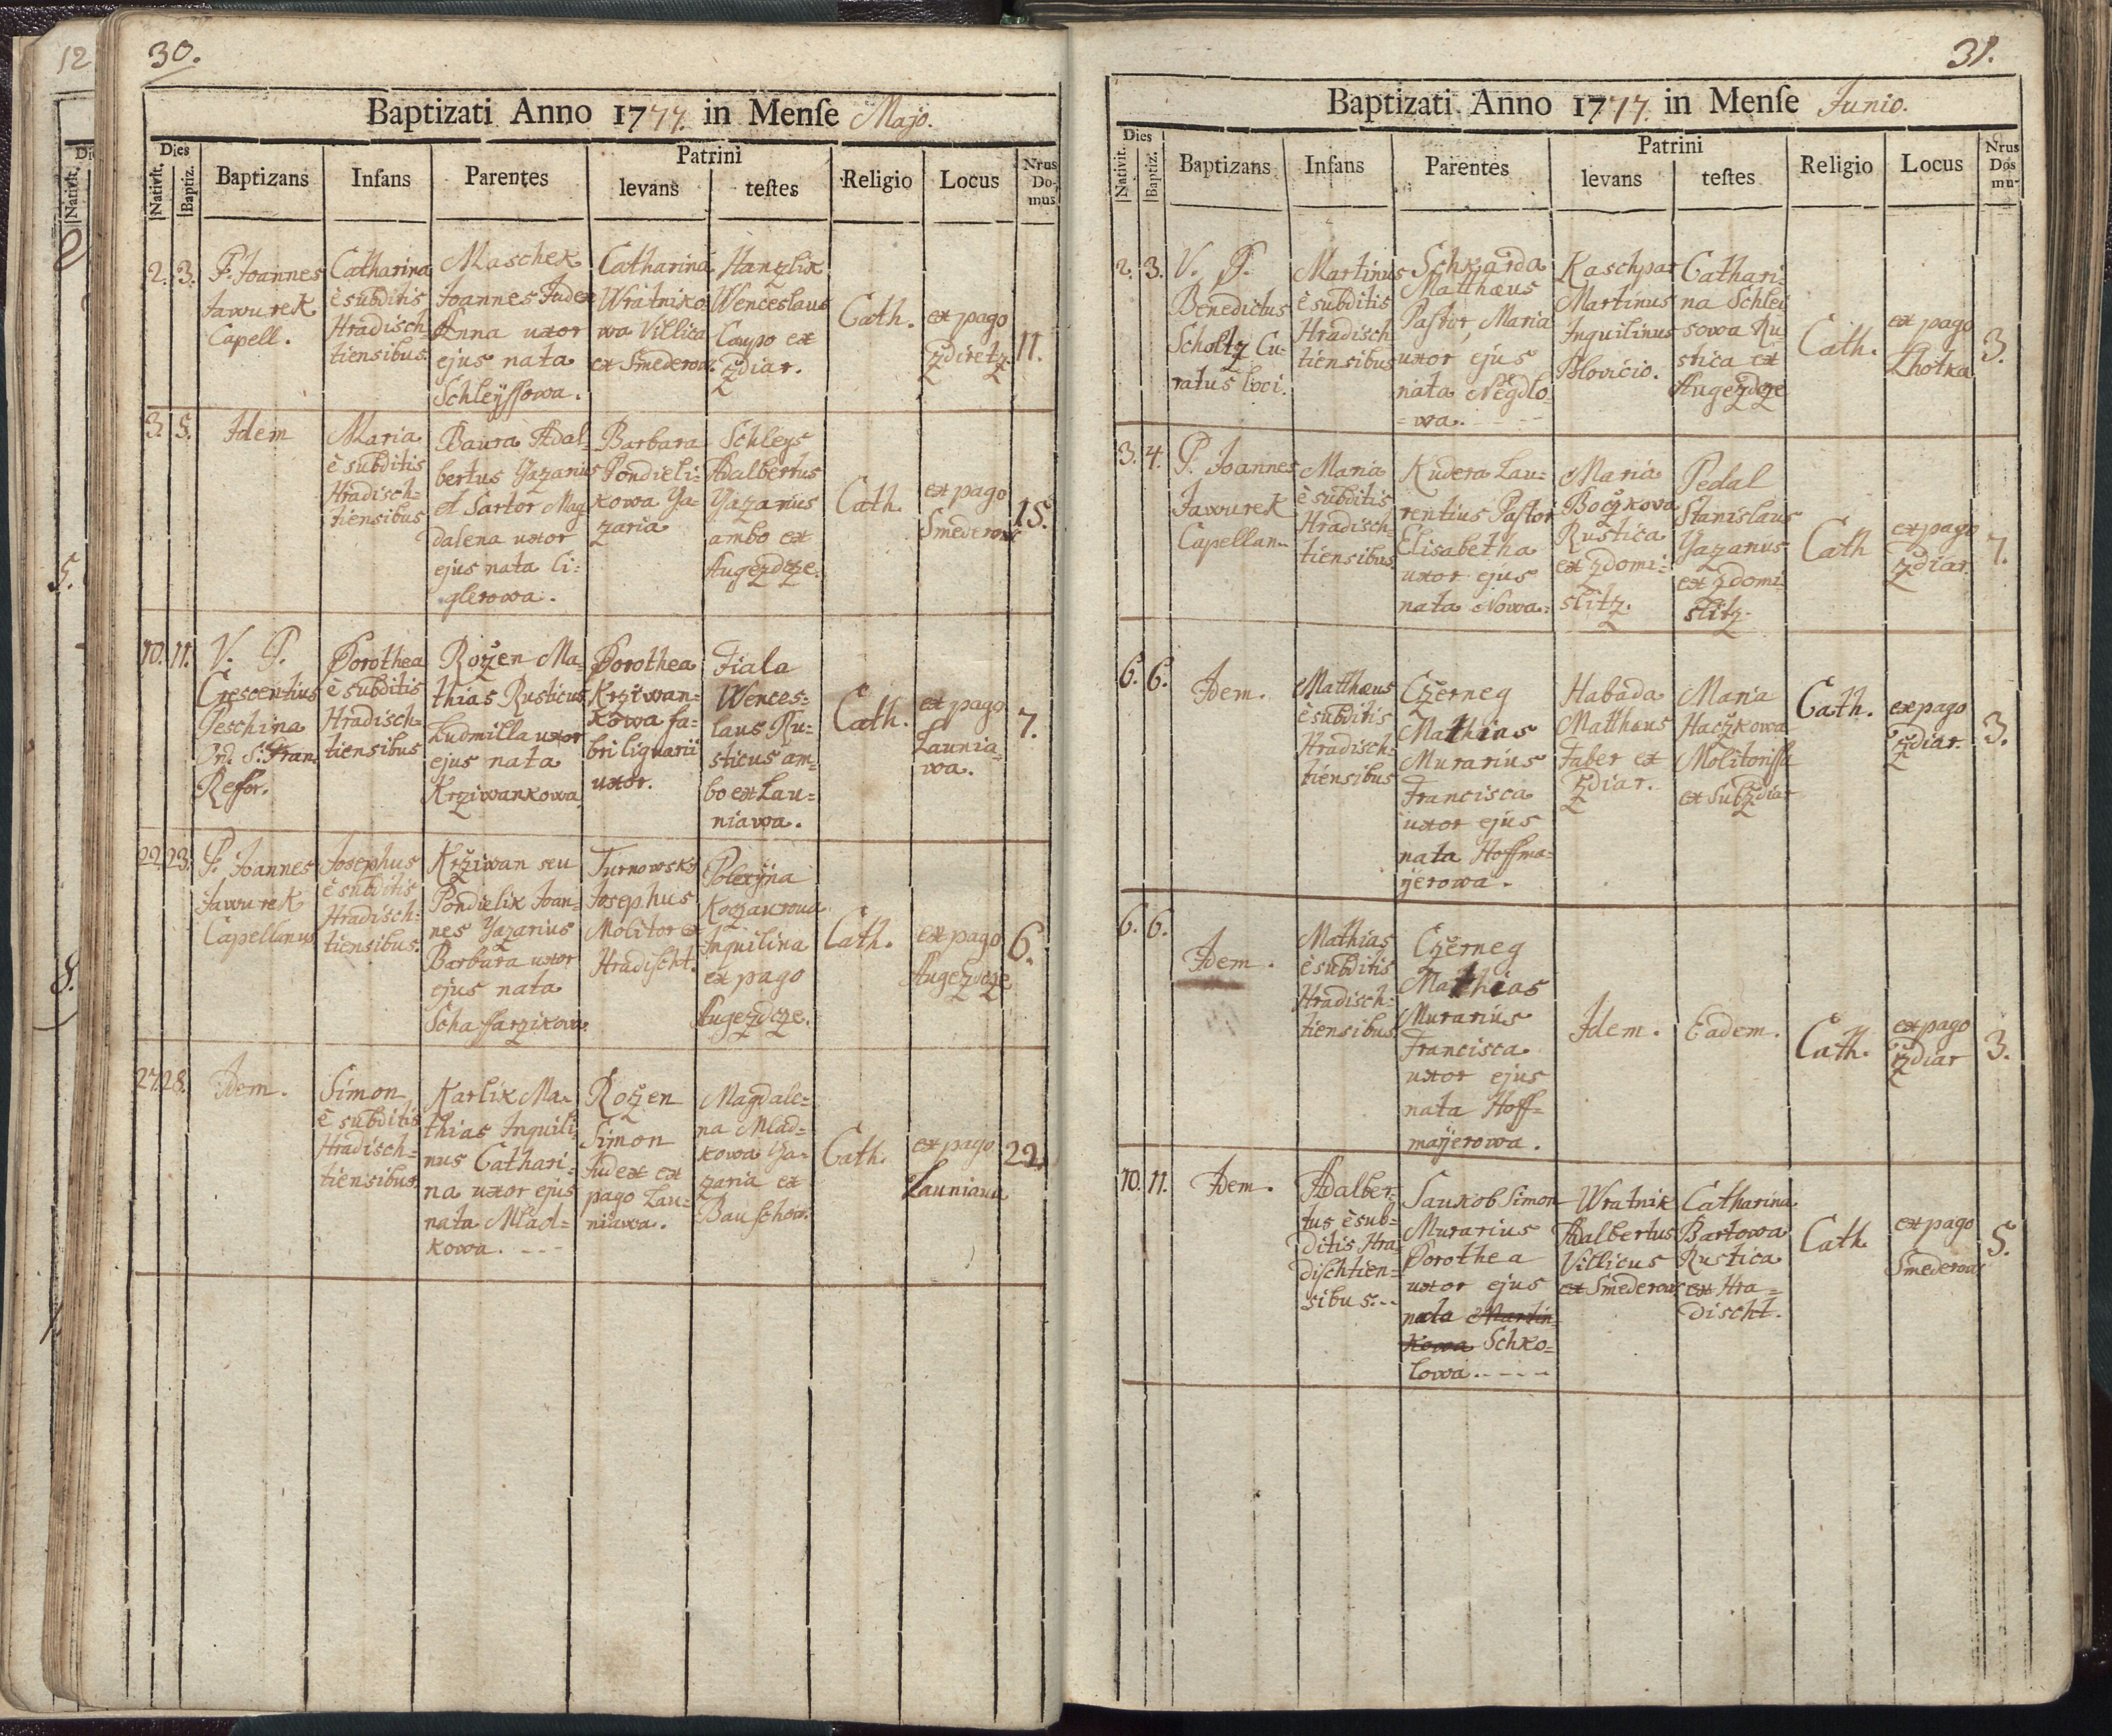 30.
Baptizati Anno 1777. in Menſe Majo.
Dies
Nativit.
Baptiz.
Baptizans
Infans
Parentes
Patrini
levans
teſtes
Religio
Locus
Nrus
Do-
mus
2.
3.
P. Joannes
Jawurek
Capell.
Catharina
è subditis
Hradisch
tiensibus.
Maschek
Joannes Judex
Anna uxor
ejus nata
Schleÿssowa.
Catharina
Wratniko
wa Villica
ex Smederow.
Hanzlik
Wenceslaus
Caupo ex
Zdiar.
Cath.
ex pago
Zdiretz
11.
3.
5.
Idem
Maria
è subditis
Hradisch=
tiensibus
Baura Adal=
bertus Yazarius
et Sartor Mag
dalena uxor
ejus nata Ci=
glerowa.
Barbara
Pondieli=
kowa Ya=
zaria
Schleys
Adalbertus
Yazarius
ambo ex
Augezdcze.
Cath.
ex pago
Smederow
15.
10.
11.
V. P.
Crescentius
Peschina
Ord. S. Fran.
Refor.
Dorothea
è subditis
Hradisch=
tiensibus
Rožen Ma=
thias Rusticus
Ludmilla uxor
ejus nata
Krziwankowa
Dorothea
Krziwan=
kowa fa=
bri lignarii
uxor.
Fiala
Wences=
laus Ru=
sticus am=
bo ex Lau=
niawa.
Cath.
ex pago
Launia
wa.
7.
22.
23.
P. Joannes
Jawurek
Capellanus
Josephus
è subditis
Hradisch=
tiensibus.
Kržiwan seu
Pondielik Joan=
nes Yazarius
Barbara uxor
ejus nata
Schaffarzikowa
Turnowsky
Josephus
Molitor ex
Hradischt.
Polexÿna
Koczaurowa
Inquilina
ex pago
Augezdcze.
Cath.
ex pago
Augezdcze
6.
27.
28.
Idem.
Simon
è subditis
Hradisch=
tiensibus.
Karlik Ma=
thias Inquili
nus Cathari=
na uxor ejus
nata Mlad=
kowa. - - -
Rožen
Simon
Judex ex
pago Lau=
niawa.
Magdale=
na Mlad=
kowa Ya=
zaria ex
Bauschow.
Cath.
ex pago
Launiawa
22.
31.
Baptizati Anno 1777. in Menſe Junio.
Dies
Nativit.
Baptiz.
Baptizans
Infans
Parentes
Patrini
levans
teſtes
Religio
Locus
Nrus
Dos
mu-
2.
3.
V. P.
Benedictus
Scholtz Cu=
ratus loci.
Martinus
è subditis
Hradisch
tiensibus
Schkarda
Matthæus
Pastor, Maria
uxor ejus
nata Negdlo=
=wa. - - - -
Kaschpar
Martinus
Inquilinus
Blovicio.
Cathari=
na Schley
sowa Ru=
stica ex
Augezdcze
Cath.
ex pago
Lhotka
3.
3.
4.
P. Joannes
Jawurek
Capellan.
Maria
è subditis
Hradisch=
tiensibus
Kudera Lau=
rentius Pastor
Elisabetha
uxor ejus
nata Nowa.
Maria
Boczkova
Rustica
ex Zdomi=
slitz.
Pedal
Stanislaus
Yazarius
ex Zdomi
slitz.
Cath
ex pago
Zdiar.
7.
6.
6.
Idem.
Matthæus
è subditis
Hradisch=
tiensibus
Czerneg
Mathias
Murarius
Francisca
uxor ejus
nata Hoffma=
ÿerowa.
Habada
Matthæus
Faber ex
Zdiar.
Maria
Haczkowa
Molitorissa
ex Subzdiar
Cath.
ex pago
Zdiar.
3.
6.
6.
Idem.
Mathias
è subditis
Hradisch=
tiensibus
Czerneg
Mathias
Murarius
Francisca
uxor ejus
nata Hoff=
maÿerowa.
Idem.
Eadem.
Cath.
ex pago
Zdiar
3.
10.
11.
Idem.
Adalber=
tus è sub=
ditis Hra=
dischtien=
sibus. - -
Saukob Simon
Murarius
Dorothea
uxor ejus
nata Martin=
kowa Schko=
lowa. - - - -
Wratnik
Adalbertus
Villicus
ex Smederow
Catharina
Bartowa
Rustica
ex Hra=
discht.
Cath.
ex pago
Smederow
5.